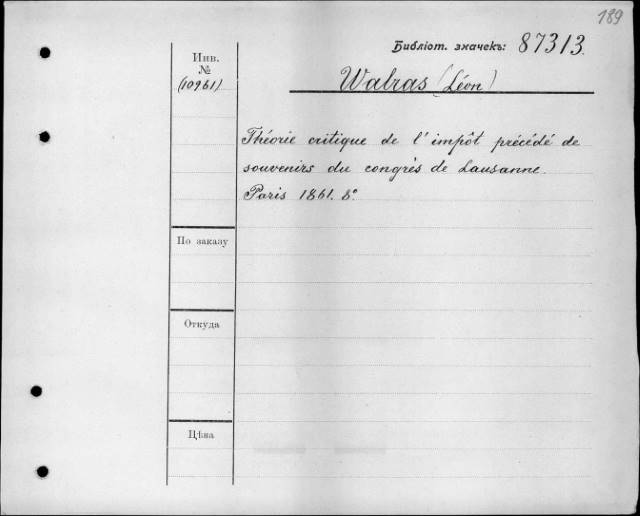 189
Библіот. значекъ: 87313.
Инв.
№
(10961)
Walras (Léon)
Théorie critique de l'impôt précédé de
souvenirs du congrès de Lausanne.
Paris 1861. 8°.
По заказу
Откуда
Цѣна